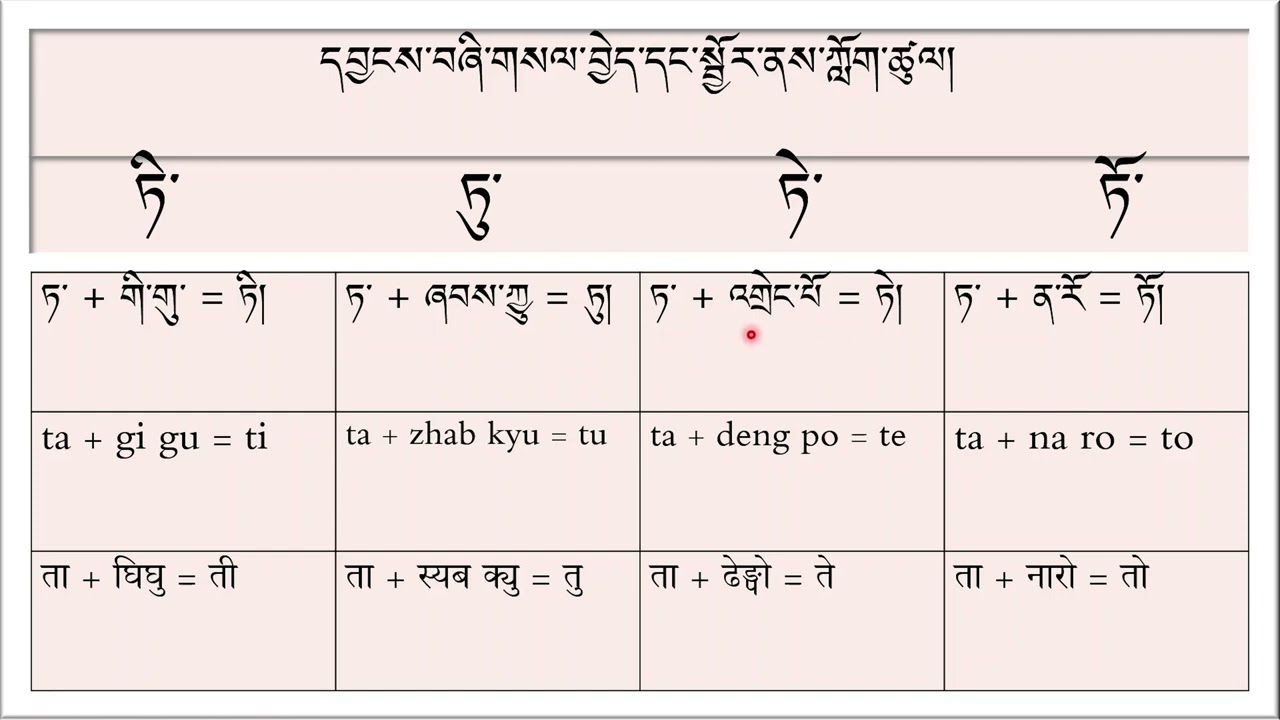 དབྱངས་བཞི་གསལ་བྱེད་དང་སྦྱོར་ནས་ཀློག་ཚུལ།
ཏི་ ཏུ་ ཏེ་ ཏོ་
ཏ་ + གི་གུ་ = ཏི། ཏ་ + ཞབས་ཀྱུ = ཏུ། ཏ་ + འགྲེང་པོ = ཏེ། ཏ་ + ན་རོ = ཏོ།
ta + gi gu = ti ta + zhab kyu = tu ta + deng po = te ta + na ro = to
ता + घिघु = ती ता + स्यब क्यु = तु ता + ढेङ्पो = ते ता + नारो = तो